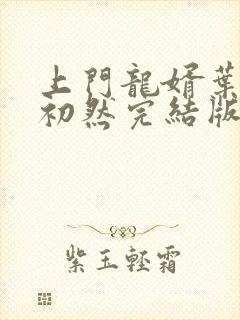 上門龍婿葉
初然完結版
紫玉輕霜